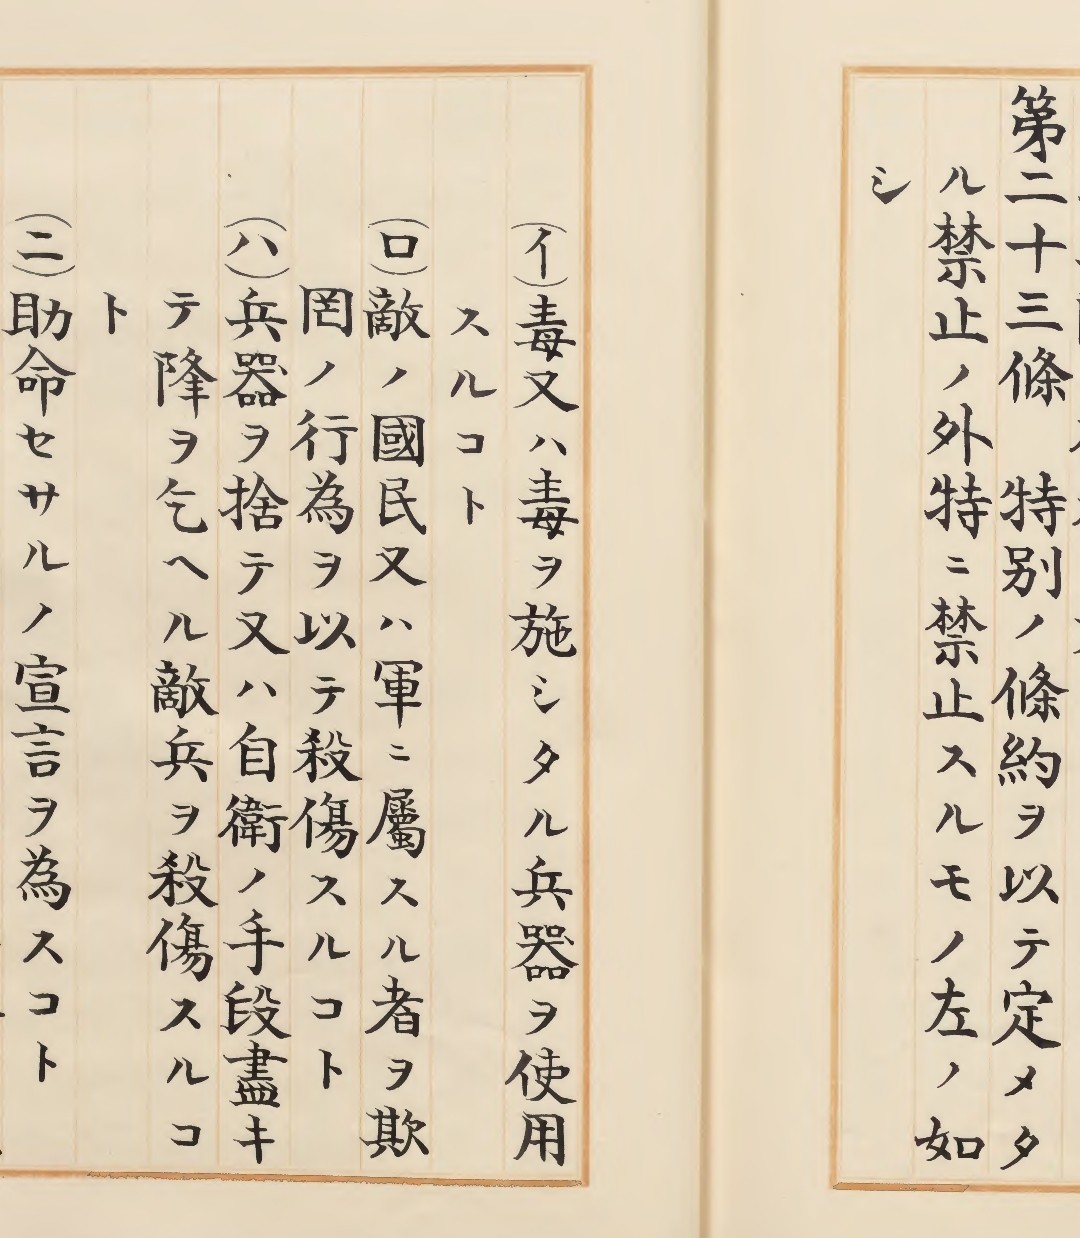 第二十三條　特別ノ條約ヲ以テ定メタ
ル禁止ノ外特ニ禁止スルモノ左ノ如
シ
(イ)毒又ハ毒ヲ施シタル兵器ヲ使用
スルコト
(ロ)敵ノ國民又ハ軍ニ屬スル者ヲ欺
罔ノ行為ヲ以テ殺傷スルコト
(ハ)兵器ヲ捨テ又ハ自衛ノ手段盡キ
テ降ヲ乞ヘル敵兵ヲ殺傷スルコ
ト
(ニ)助命セサルノ宣言ヲ為スコト